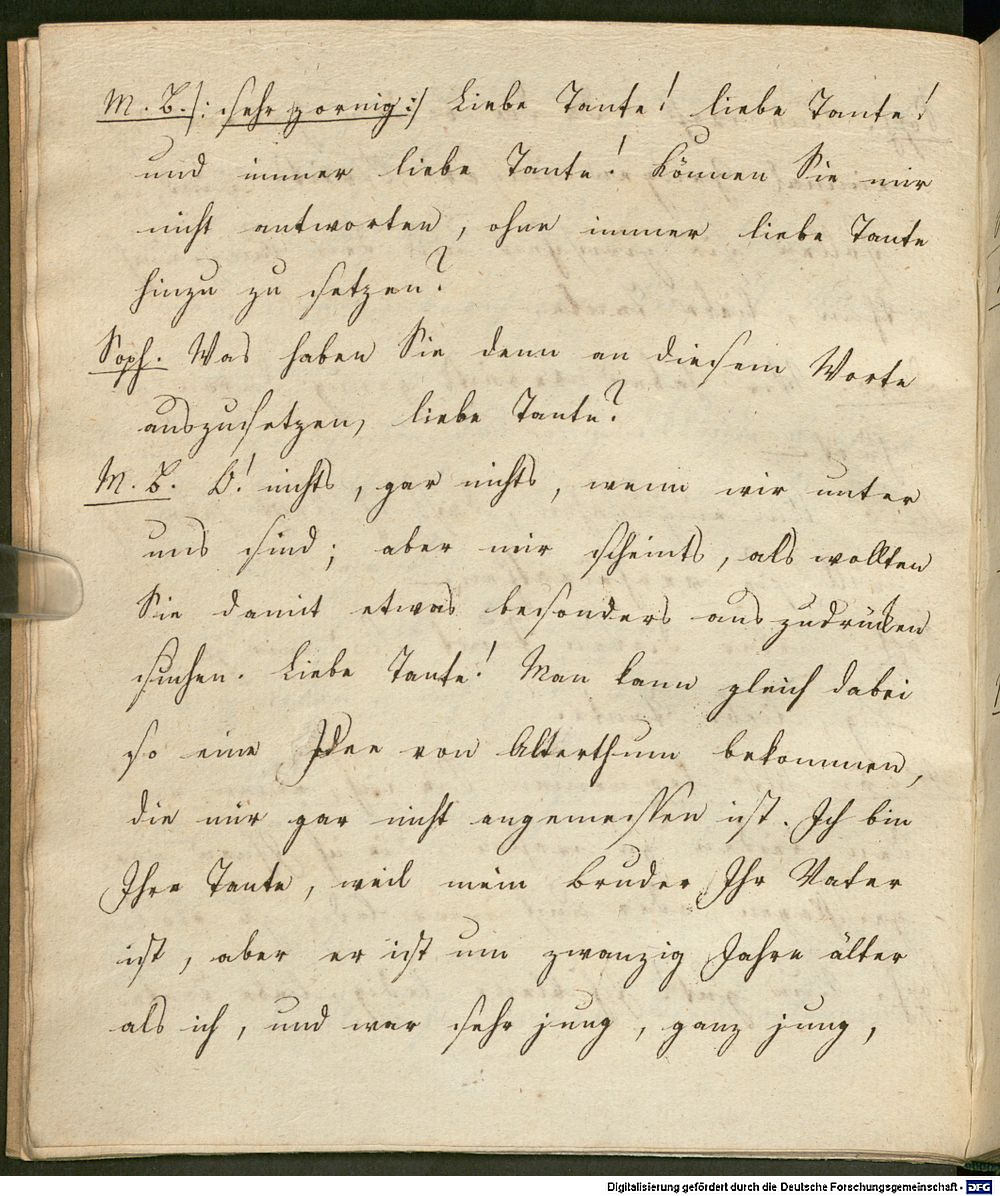 M. B. /: sehr zornig :/ Liebe Tante! liebe Tante!
und immer liebe Tante! Können Sie mir
nicht antworten, ohne immer liebe Tante
hinzu zu setzen?
Soph. Was haben Sie denn an diesem Worte
auszusetzen, liebe Tante?
M. B. O! nichts, gar nichts, wenn wir unter
uns sind; aber mir scheints, als wollten
Sie damit etwas besonders auszudrücken
suchen. Liebe Tante! Man kann gleich dabei
so eine Idee von Alterthum bekommen,
die mir gar nicht angemessen ist. Ich bin
Ihre Tante, weil mein Bruder Ihr Vater
ist, aber er ist um zwanzig Jahre älter
als ich, und war sehr jung, ganz jung,
Digitalisierung gefördert durch die Deutsche Forschungsgemeinschaft - DFG